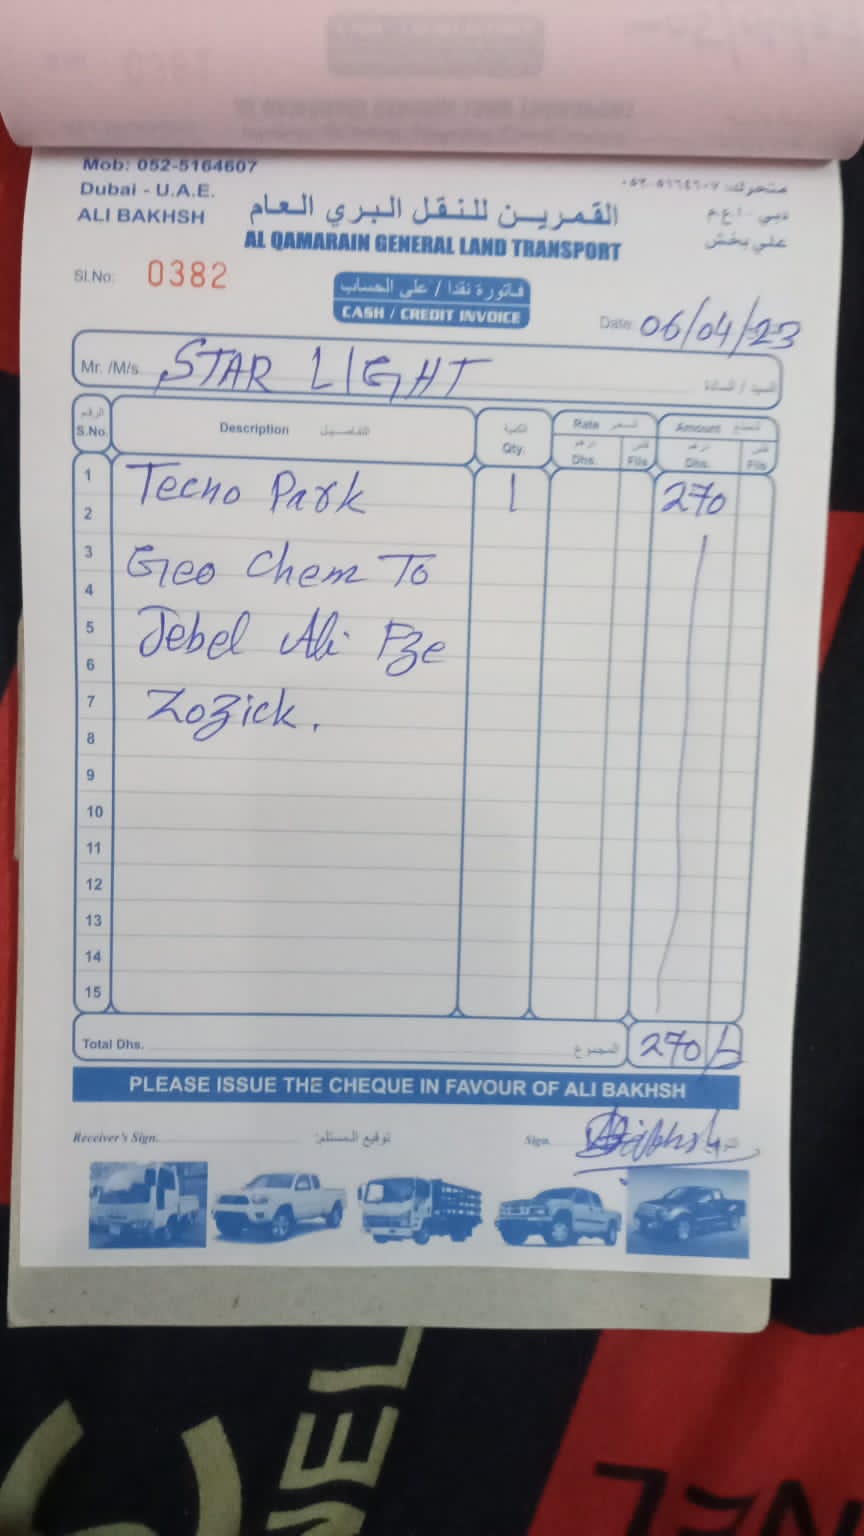 Mob: 052-5164607
Dubai - U.A.E.
ALI BAKHSH
متحرك: ٠٥٢-٥١٦٤٦٠٧
دبي - ا.ع.م
علي بخش
القمرين للنقل البري العام
AL QAMARAIN GENERAL LAND TRANSPORT
Sl.No: 0382
فاتورة نقدا / على الحساب
CASH / CREDIT INVOICE
Date: 06/04/23
Mr. /M/s. STAR LIGHT السيد / السادة
الرقم التفاصيل الكمية السعر المبلغ
S.No. Description Qty. Rate Amount
درهم فلس درهم فلس
Dhs. Fils Dhs. Fils
1 Tecno Park 1 270
2
3 Geo Chem To
4
5 Jebel Ali Fze
6
7 Zozick.
8
9
10
11
12
13
14
15
Total Dhs. المجموع 270/-
PLEASE ISSUE THE CHEQUE IN FAVOUR OF ALI BAKHSH
Receiver's Sign. توقيع المستلم: Sign.